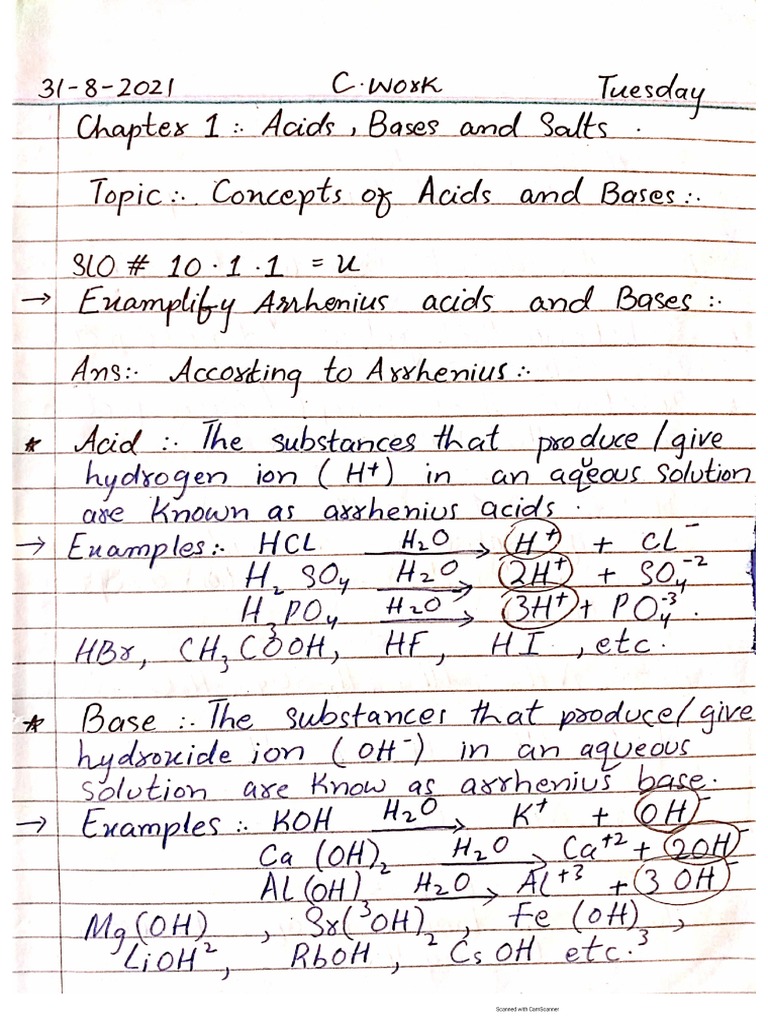 31-8-2021 C.Work Tuesday
Chapter 1 :. Acids, Bases and Salts .
Topic :. Concepts of Acids and Bases :.
SLO # 10.1.1 = U
→ Examplify Arrhenius acids and Bases :.
Ans:. Accorting to Arrhenius :.
* Acid :. The substances that produce/give
hydrogen ion (H⁺) in an aqueous solution
are Known as arrhenius acids .
→ Examples :. HCL —H₂O→ H⁺ + CL⁻
H₂SO₄ —H₂O→ 2H⁺ + SO₄⁻²
H₃PO₄ —H₂O→ 3H⁺ + PO₄⁻³ .
HBr, CH₃COOH, HF, HI , etc.
* Base :. The substances that produce/give
hydroxide ion (OH⁻) in an aqueous
solution are Know as arrhenius base.
→ Examples :. KOH —H₂O→ K⁺ + OH⁻
Ca(OH)₂ —H₂O→ Ca⁺² + 2OH⁻
AL(OH)₃ —H₂O→ AL⁺³ + 3OH⁻
Mg(OH)₂ , Sr(OH)₂ , Fe(OH)₃ ,
LiOH , RbOH , CsOH etc.
Scanned with CamScanner